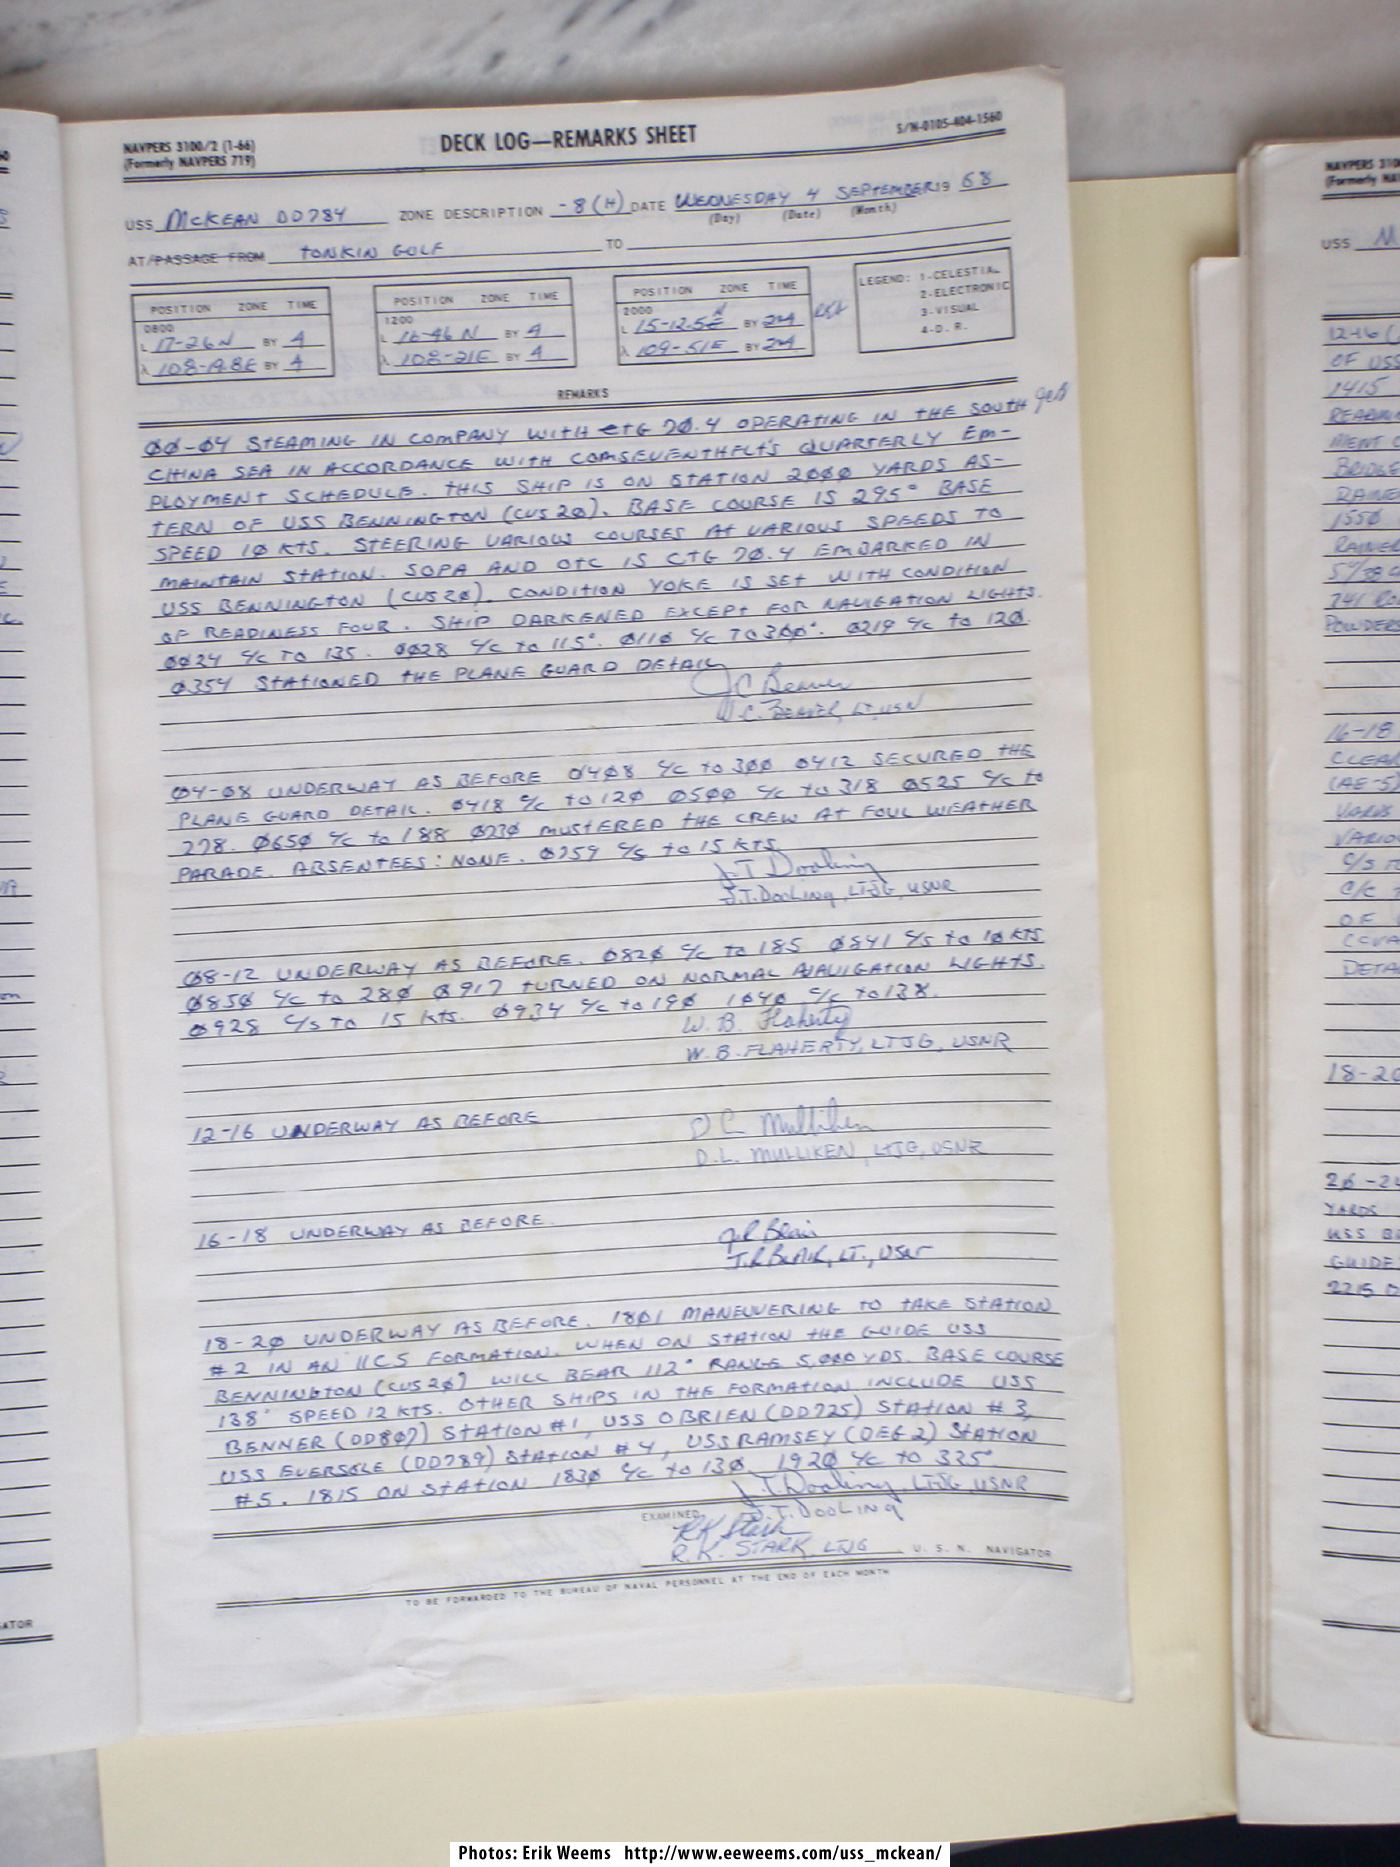 NAVPERS 3100/2 (1-66)
(Formerly NAVPERS 719)
DECK LOG—REMARKS SHEET
S/N-0105-404-1560
USS McKEAN DD784 ZONE DESCRIPTION -8(H) DATE WEDNESDAY 4 SEPTEMBER 19 68
(Day) (Date) (Month)
AT/PASSAGE FROM TONKIN GULF TO
POSITION ZONE TIME
0800
L 17-26N BY 4
λ 108-19.8E BY 4
POSITION ZONE TIME
1200
L 16-46N BY 4
λ 108-21E BY 4
POSITION ZONE TIME
2000
L 15-12.5 N BY 2+4
λ 109-51E BY 2+4
LEGEND: 1-CELESTIAL
2-ELECTRONIC
3-VISUAL
4-D. R.
REMARKS
00-04 STEAMING IN COMPANY WITH CTG 70.4 OPERATING IN THE SOUTH
CHINA SEA IN ACCORDANCE WITH COMSEVENTHFLT'S QUARTERLY EM-
PLOYMENT SCHEDULE. THIS SHIP IS ON STATION 2000 YARDS AS-
TERN OF USS BENNINGTON (CVS20). BASE COURSE IS 295° BASE
SPEED 10 KTS. STEERING VARIOUS COURSES AT VARIOUS SPEEDS TO
MAINTAIN STATION. SOPA AND OTC IS CTG 70.4 EMBARKED IN
USS BENNINGTON (CVS20). CONDITION YOKE IS SET WITH CONDITION
OF READINESS FOUR. SHIP DARKENED EXCEPT FOR NAVIGATION LIGHTS.
0024 C/C TO 135. 0028 C/C TO 115°. 0110 C/C TO 300°. 0219 C/C TO 120.
0354 STATIONED THE PLANE GUARD DETAIL
J C Beaver
J.C. BEAVER, LT, USN
04-08 UNDERWAY AS BEFORE 0408 C/C TO 300 0412 SECURED THE
PLANE GUARD DETAIL. 0418 C/C TO 120 0500 C/C TO 318 0525 C/C TO
278. 0650 C/C TO 188 0730 MUSTERED THE CREW AT FOUL WEATHER
PARADE. ABSENTEES: NONE. 0759 C/S TO 15 KTS.
J.T Dooling
J.T. Dooling, LTJG, USNR
08-12 UNDERWAY AS BEFORE. 0820 C/C TO 185 0841 C/S TO 10 KTS
0850 C/C TO 280 0917 TURNED ON NORMAL NAVIGATION LIGHTS.
0928 C/S TO 15 KTS. 0934 C/C TO 190 1040 C/C TO 138.
W. B. Flaherty
W. B. FLAHERTY, LTJG, USNR
12-16 UNDERWAY AS BEFORE
D L Mulliken
D.L. MULLIKEN, LTJG, USNR
16-18 UNDERWAY AS BEFORE.
J R Blair
J.R BLAIR, LT., USN
18-20 UNDERWAY AS BEFORE. 1801 MANEUVERING TO TAKE STATION
#2 IN AN 11C5 FORMATION. WHEN ON STATION THE GUIDE USS
BENNINGTON (CVS20) WILL BEAR 112° RANGE 5,000 YDS. BASE COURSE
138° SPEED 12 KTS. OTHER SHIPS IN THE FORMATION INCLUDE USS
BENNER (DD807) STATION #1, USS OBRIEN (DD725) STATION #3,
USS EVERSOLE (DD789) STATION #4, USS RAMSEY (DEG 2) STATION
#5. 1815 ON STATION 1830 C/C TO 130 1920 C/C TO 335°
J.T. Dooling, LTJG, USNR
J.T. DOOLING
EXAMINED
RK Stark
R. K. STARK, LTJG U. S. N. NAVIGATOR
TO BE FORWARDED TO THE BUREAU OF NAVAL PERSONNEL AT THE END OF EACH MONTH
USS M
12-16
OF USS
1415
MENT
BRIDGE
1550
RAINER
POWDERS
16-18
CLEAR
(AE-5)
C/C
OF
DETA
18-20
20-24
YARDS
USS B
GUIDE
2215
Photos: Erik Weems http://www.eeweems.com/uss_mckean/